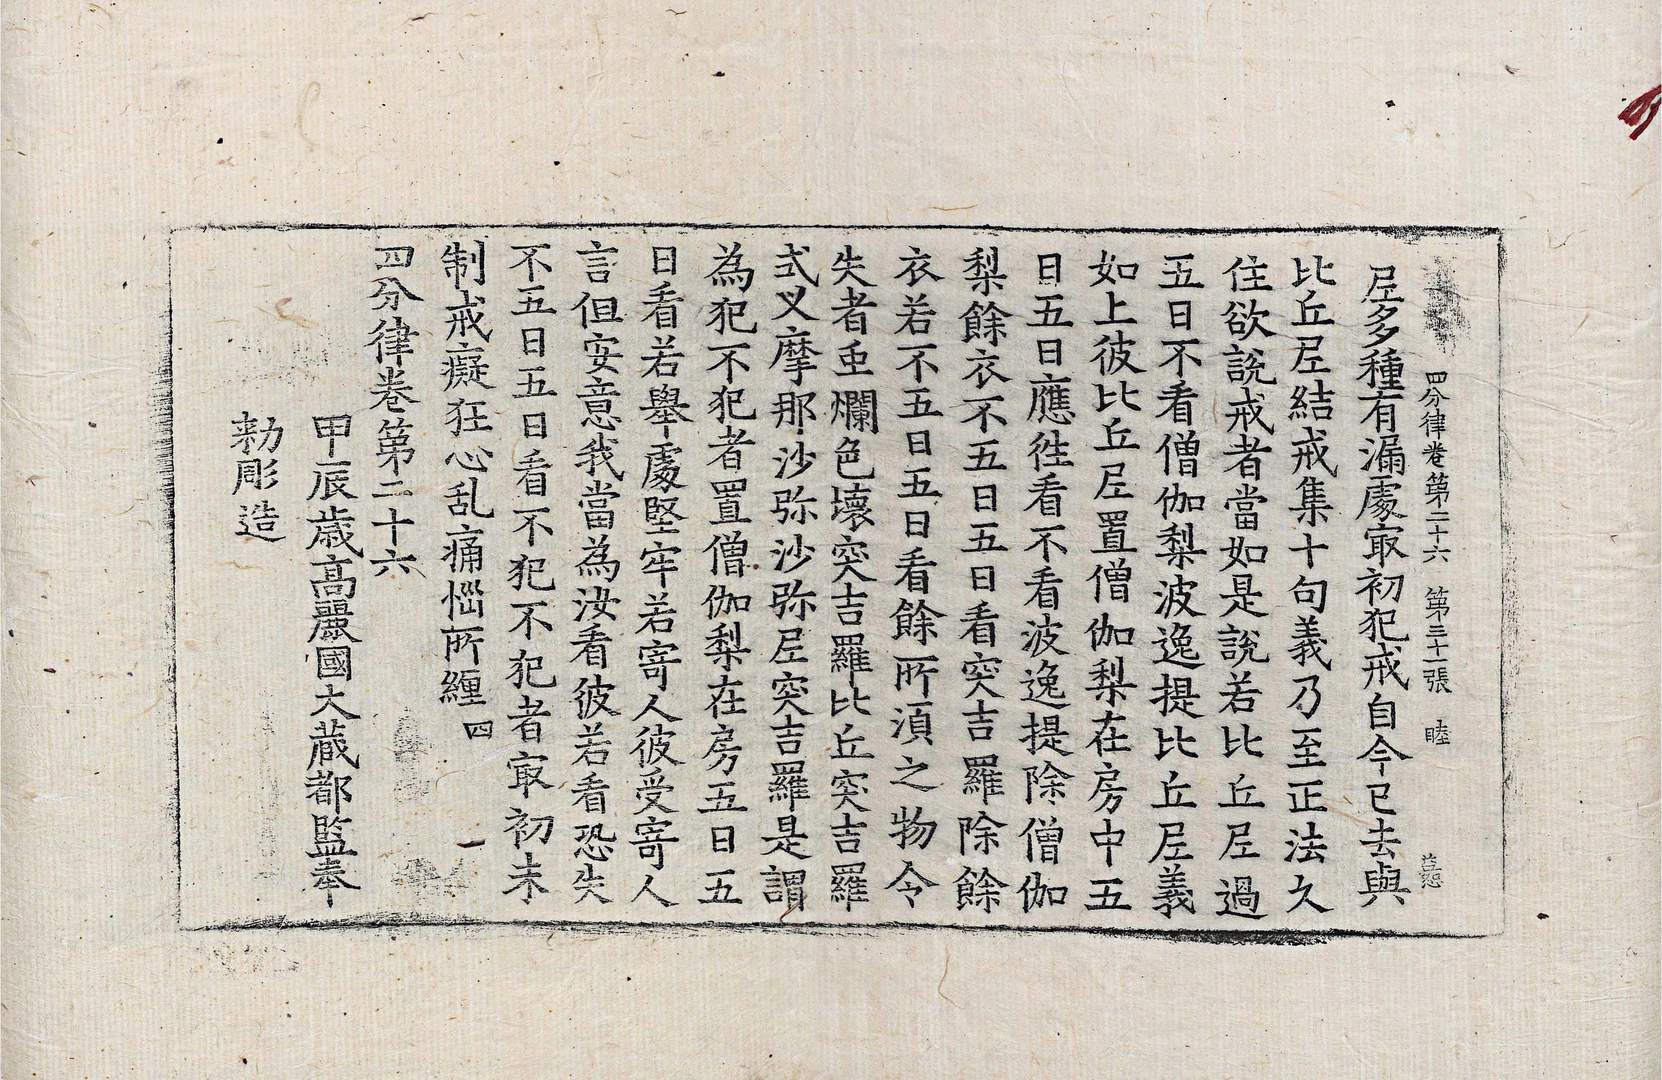 四分律卷第二十六　第三十一張　睦
尼多種有漏處㝡初犯戒自今已去與
比丘尼結戒集十句義乃至正法久
住欲說戒者當如是說若比丘尼過
五日不看僧伽梨波逸提比丘尼義
如上彼比丘尼置僧伽梨在房中五
日五日應徃看不看波逸提除僧伽
梨餘衣不五日五日看突吉羅除餘
衣若不五日五日看餘所湏之物令
失者虫爛色壞突吉羅比丘突吉羅
式叉摩那沙弥沙弥尼突吉羅是謂
為犯不犯者置僧伽梨在房五日五
日看若舉處堅牢若寄人彼受寄人
言但安意我當為汝看彼若看恐失
不五日五日看不犯不犯者㝡初未
制戒癡狂心乱痛惱所纏 四 一
四分律卷第二十六
甲辰歲高麗國大藏都監奉
勑彫造